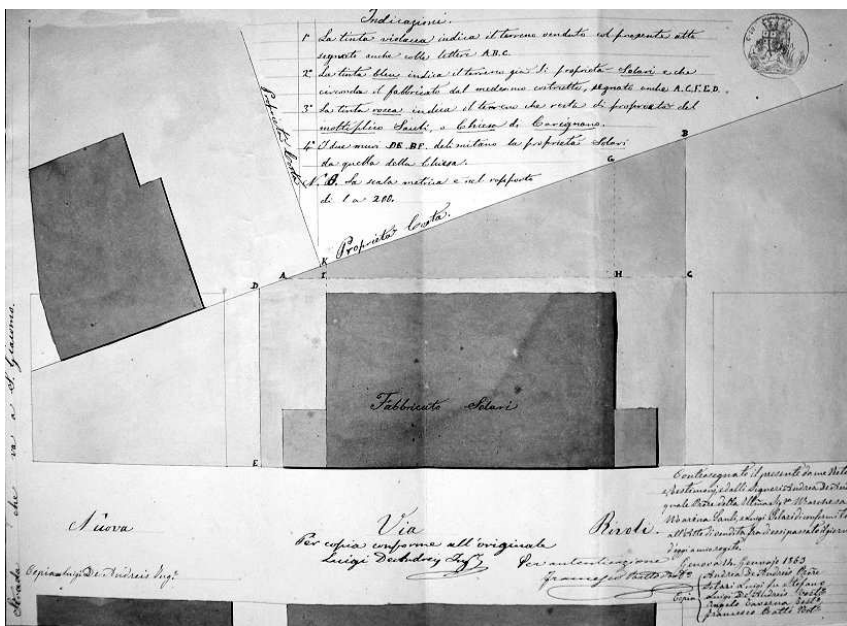 Indicazioni.
1° La tinta violacea indica il terreno venduto col presente atto
segnato anche colle lettere A.B.C.
2° La tinta bleu indica il terreno già di proprietà Solari e che
circonda il fabbricato dal medesimo costrutto, segnato anche A.C.F.E.D.
3° La tinta rossa indica il terreno che resta di proprietà del
moltiplico Sauli, o Chiesa di Carignano.
4° I due muri DE. BF. delimitano la proprietà Solari
da quella della Chiesa.
N.B. La scala metrica è nel rapporto
di 1 a 200.
Proprietà Costa
Proprietà Costa.
B
G
K
D A I H C
Fabbricato Solari
E
Strada che va a S. Giacomo.
Nuova Via Rivoli.
Per copia conforme all'originale
Luigi DeAndreis Ing.
Copia Luigi De Andreis Ing.
Per autenticazione
Francesco
Contrasegnato il presente da me
Andrea De
quale della
Luigi Solari di conformità
all'Atto di vendita fra di essi passato il giorno
d'oggi a mio rogito.
Genova Gennajo 1863
Andrea De Andreis
Solari Luigi fu Stefano
Copia Luigi De Andreis
Angelo Taverna
Francesco